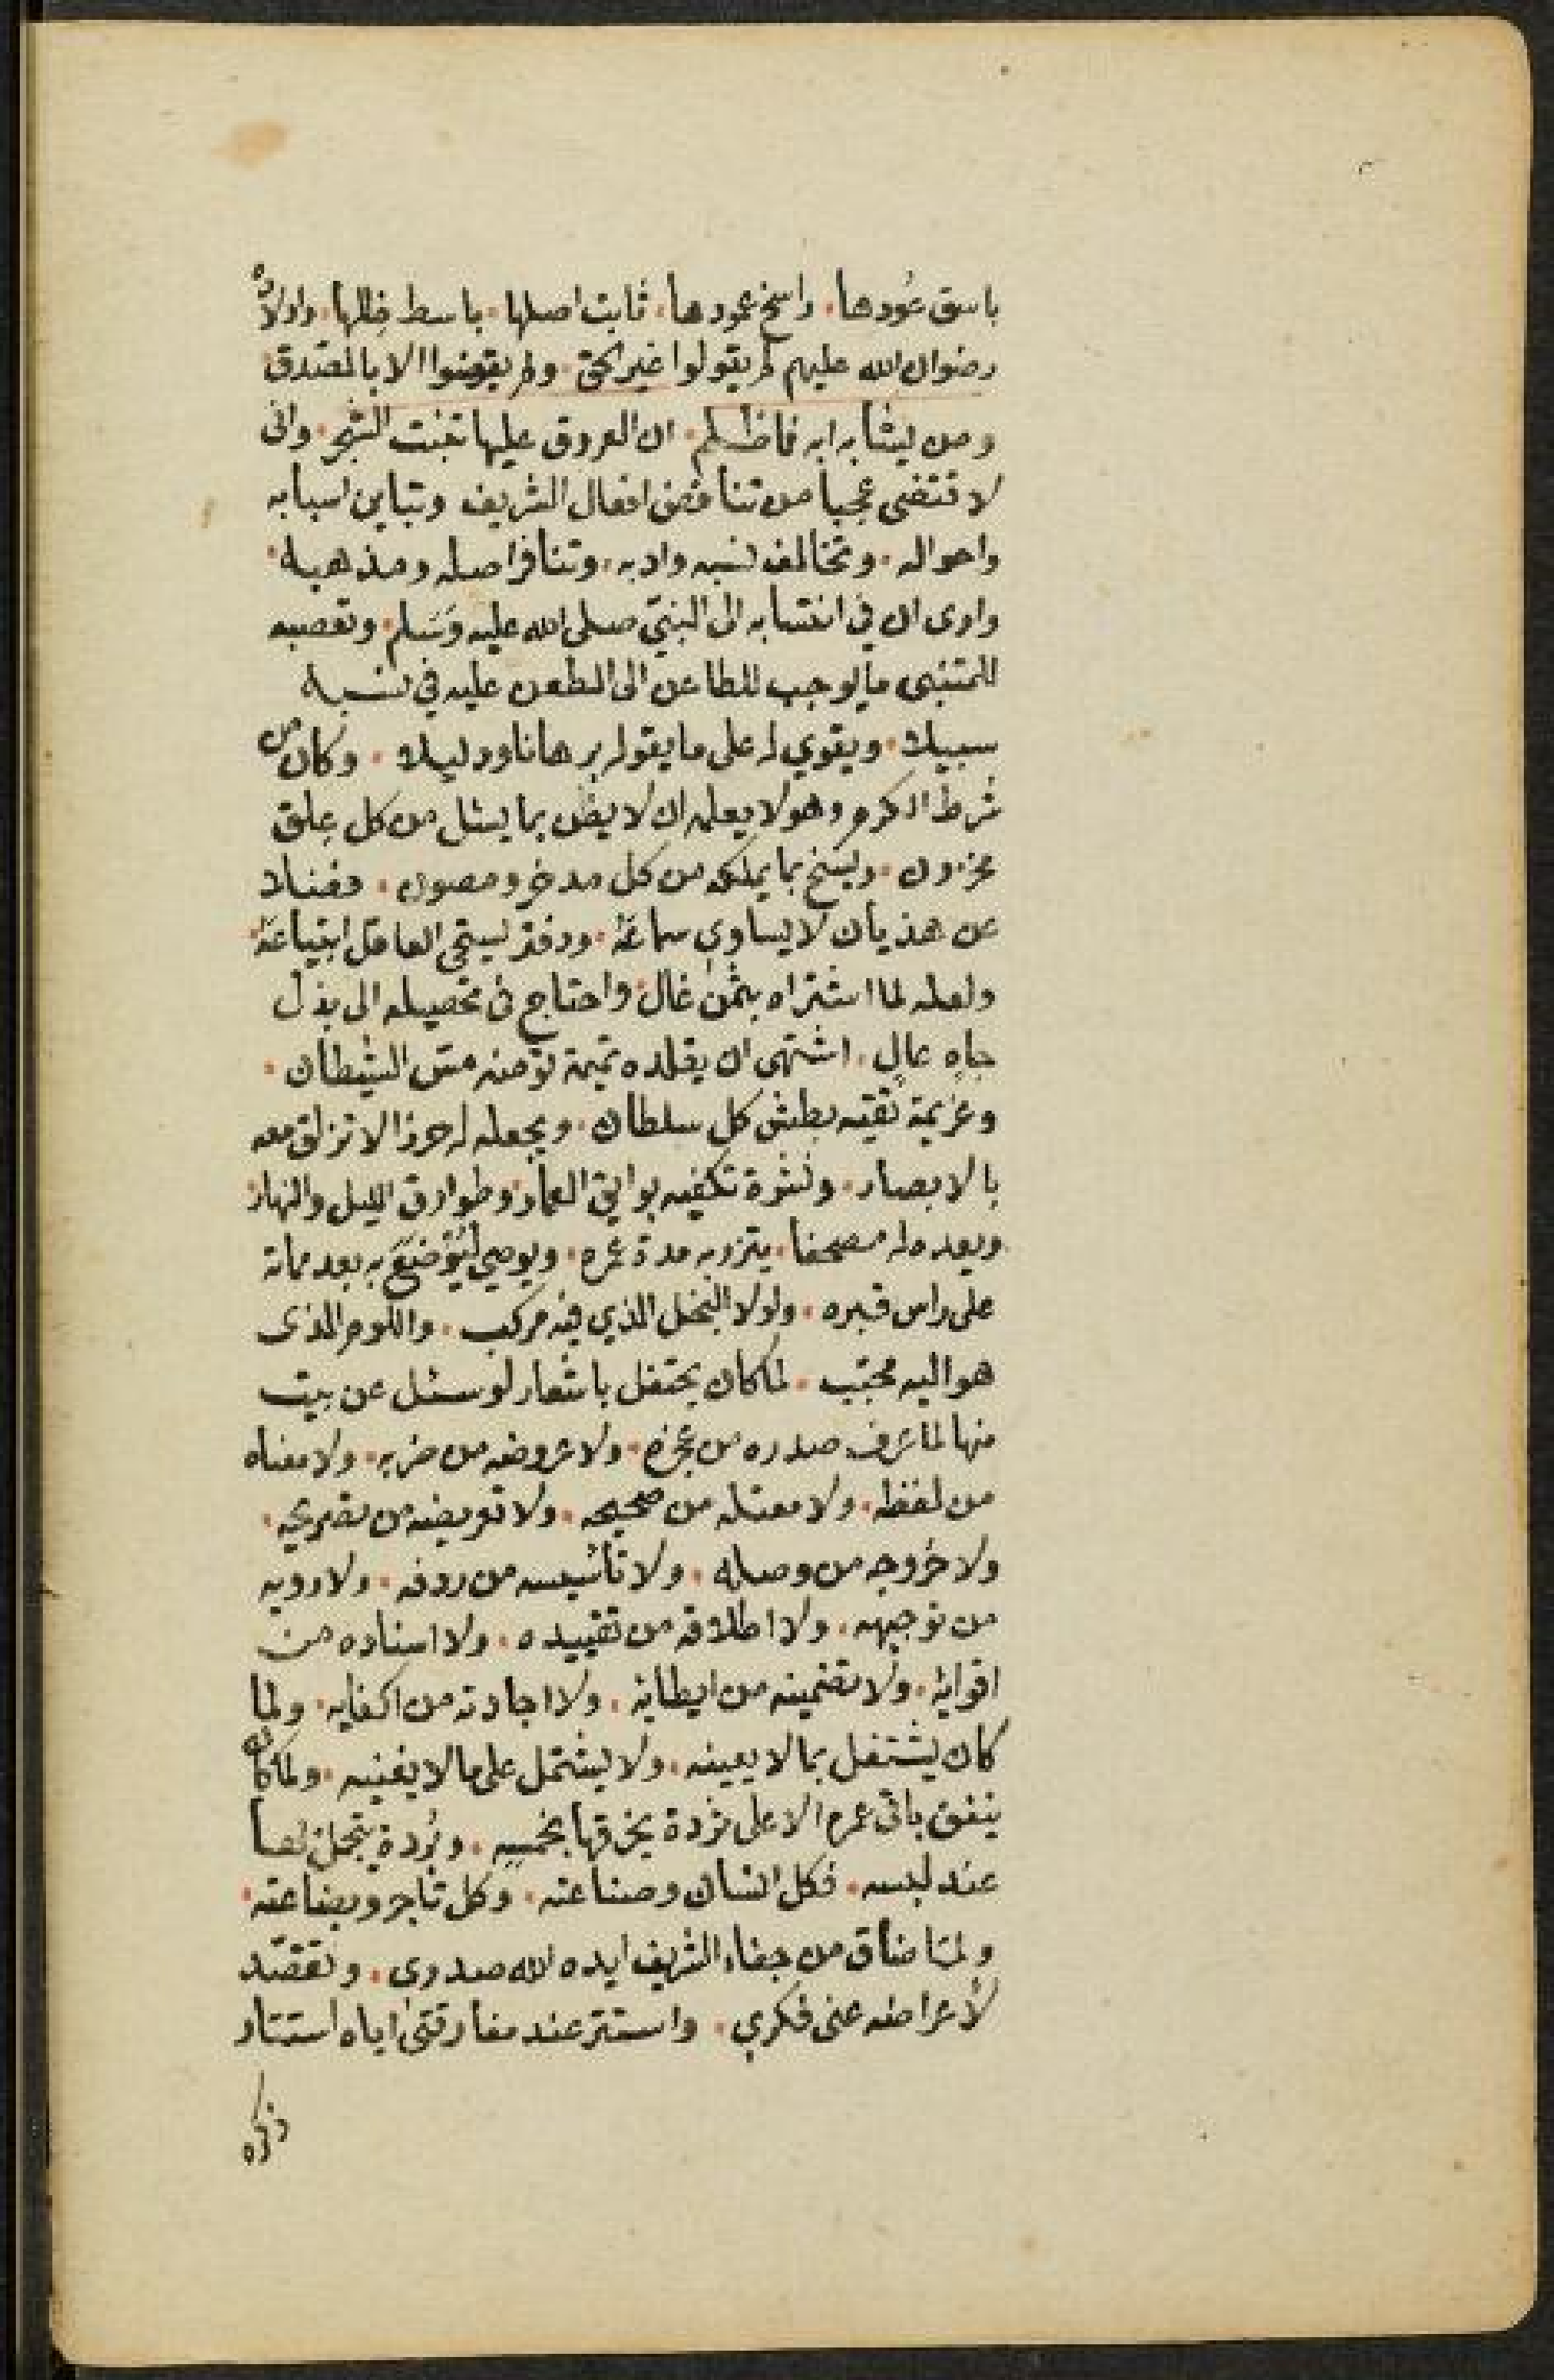 باسق عُودها. راسخ عمودها. ثابت اصلها. باسط ظلها. واولاده
رضوان الله عليهم لم يقولوا غير الحق. ولم يقضوا الا بالصدق
ومن يشابه ابه فما ظلم. ان العروق عليها تنبت الشجر. وانى
لا قتضى عجبا من تناقض افعال الشريف وتباين اسبابه
واحواله. وتخالف نسبه وادبه. وتنافر اصله ومذهبه.
وارى ان في انتسابه الى النبيّ صلى الله عليه وسَلم. وتعصبه
للمتنبى ما يوجب للطاعن الى الطعن عليه في نسبه
سبيلا. ويقوي له على ما يقوله برهانا ودليلا. وكان من
شرط الكرم وهو لا يعلمه ان لا يضن بما يسئل من كل عِلق
مخزون. ويسخ بما يملكه من كل مدخر ومصون. فضلا
عن هذيان لا يساوى سماعَهُ. ودفتر يستحى العاقل ابتياعَهُ.
ولعله لما اشتراه بثمن غال. واحتاج فى تحصيله الى بذل
جاهٍ عالٍ. اشتهى ان يقلده تميمة تؤمنه مسّ الشيطان.
وعزيمة تقيه بطش كل سلطان. ويجعله له حرزا لا تزلق معه
بالابصار. ونشرة تكفيه بوايق العمار وطوارق الليل والنهار
ويعده له مصحفا. يتزر به مدة عمره. ويوصي ليُوضَع به بعد مماته
على راس قبره. ولولا البخل الذي فيه مركب. واللوم الذى
هو اليه محبّب. لما كان يحتفل باشعار لو سئل عن بيت
منها لما عرف صدره من عجزه. ولا عروضه من ضربه. ولا معناه
من لفظه. ولا معتله من صحيحه. ولا تعريضه من تصريحه.
ولا خروجه من وصله. ولا تأسيسه من ردفه. ولا رويه
من توجيهه. ولا اطلاقه من تقييده. ولا اسناده من
اقوايه. ولا تضمينه من ايطايه. ولا اجازته من اكفايه. ولما
كان يشتغل بما لا يعينه. ولا يشتمل على ما لا يغنيه. ولما كان
ينفق باقى عمره الا على بُردة يخرقها بخمسه. وبُردة يتجمل بها
عند لبسه. فكل انسان وصناعته. وكل تاجر وبضاعته.
ولمّا ضاق من جفاء الشريف ايده الله صدرى. وتقصّد
لأعراضه عنى فكري. واستتر عند مفارقتى اياه استتار
ذكره